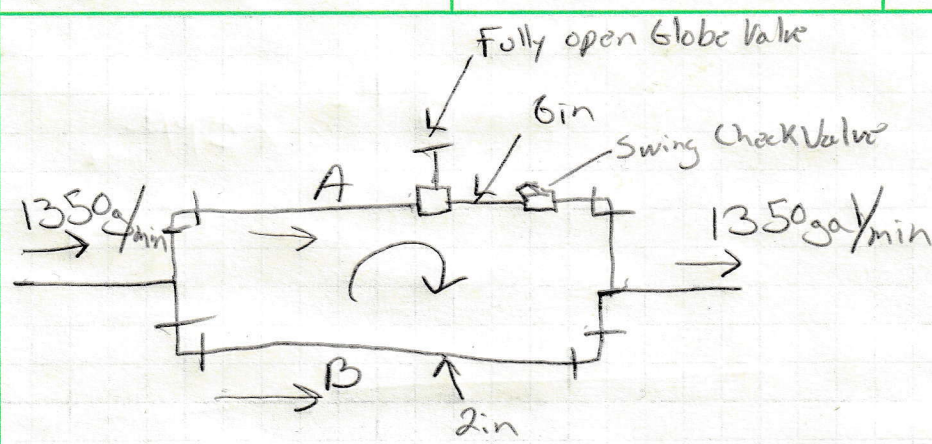 Fully open Globe Valve
6in
Swing Check Valve
A
1350g/min
1350gal/min
B
2in